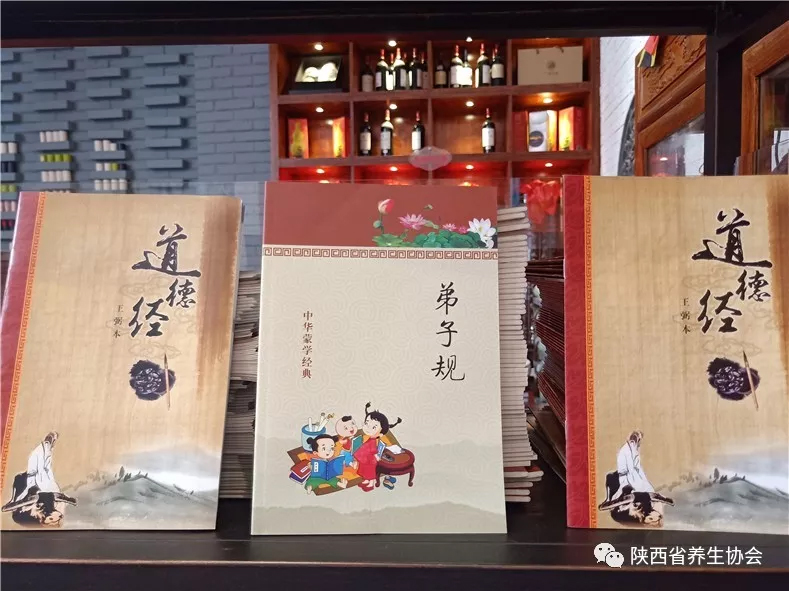 道德经
王弼本
弟子规
中华蒙学经典
道德经
王弼本
陕西省养生协会